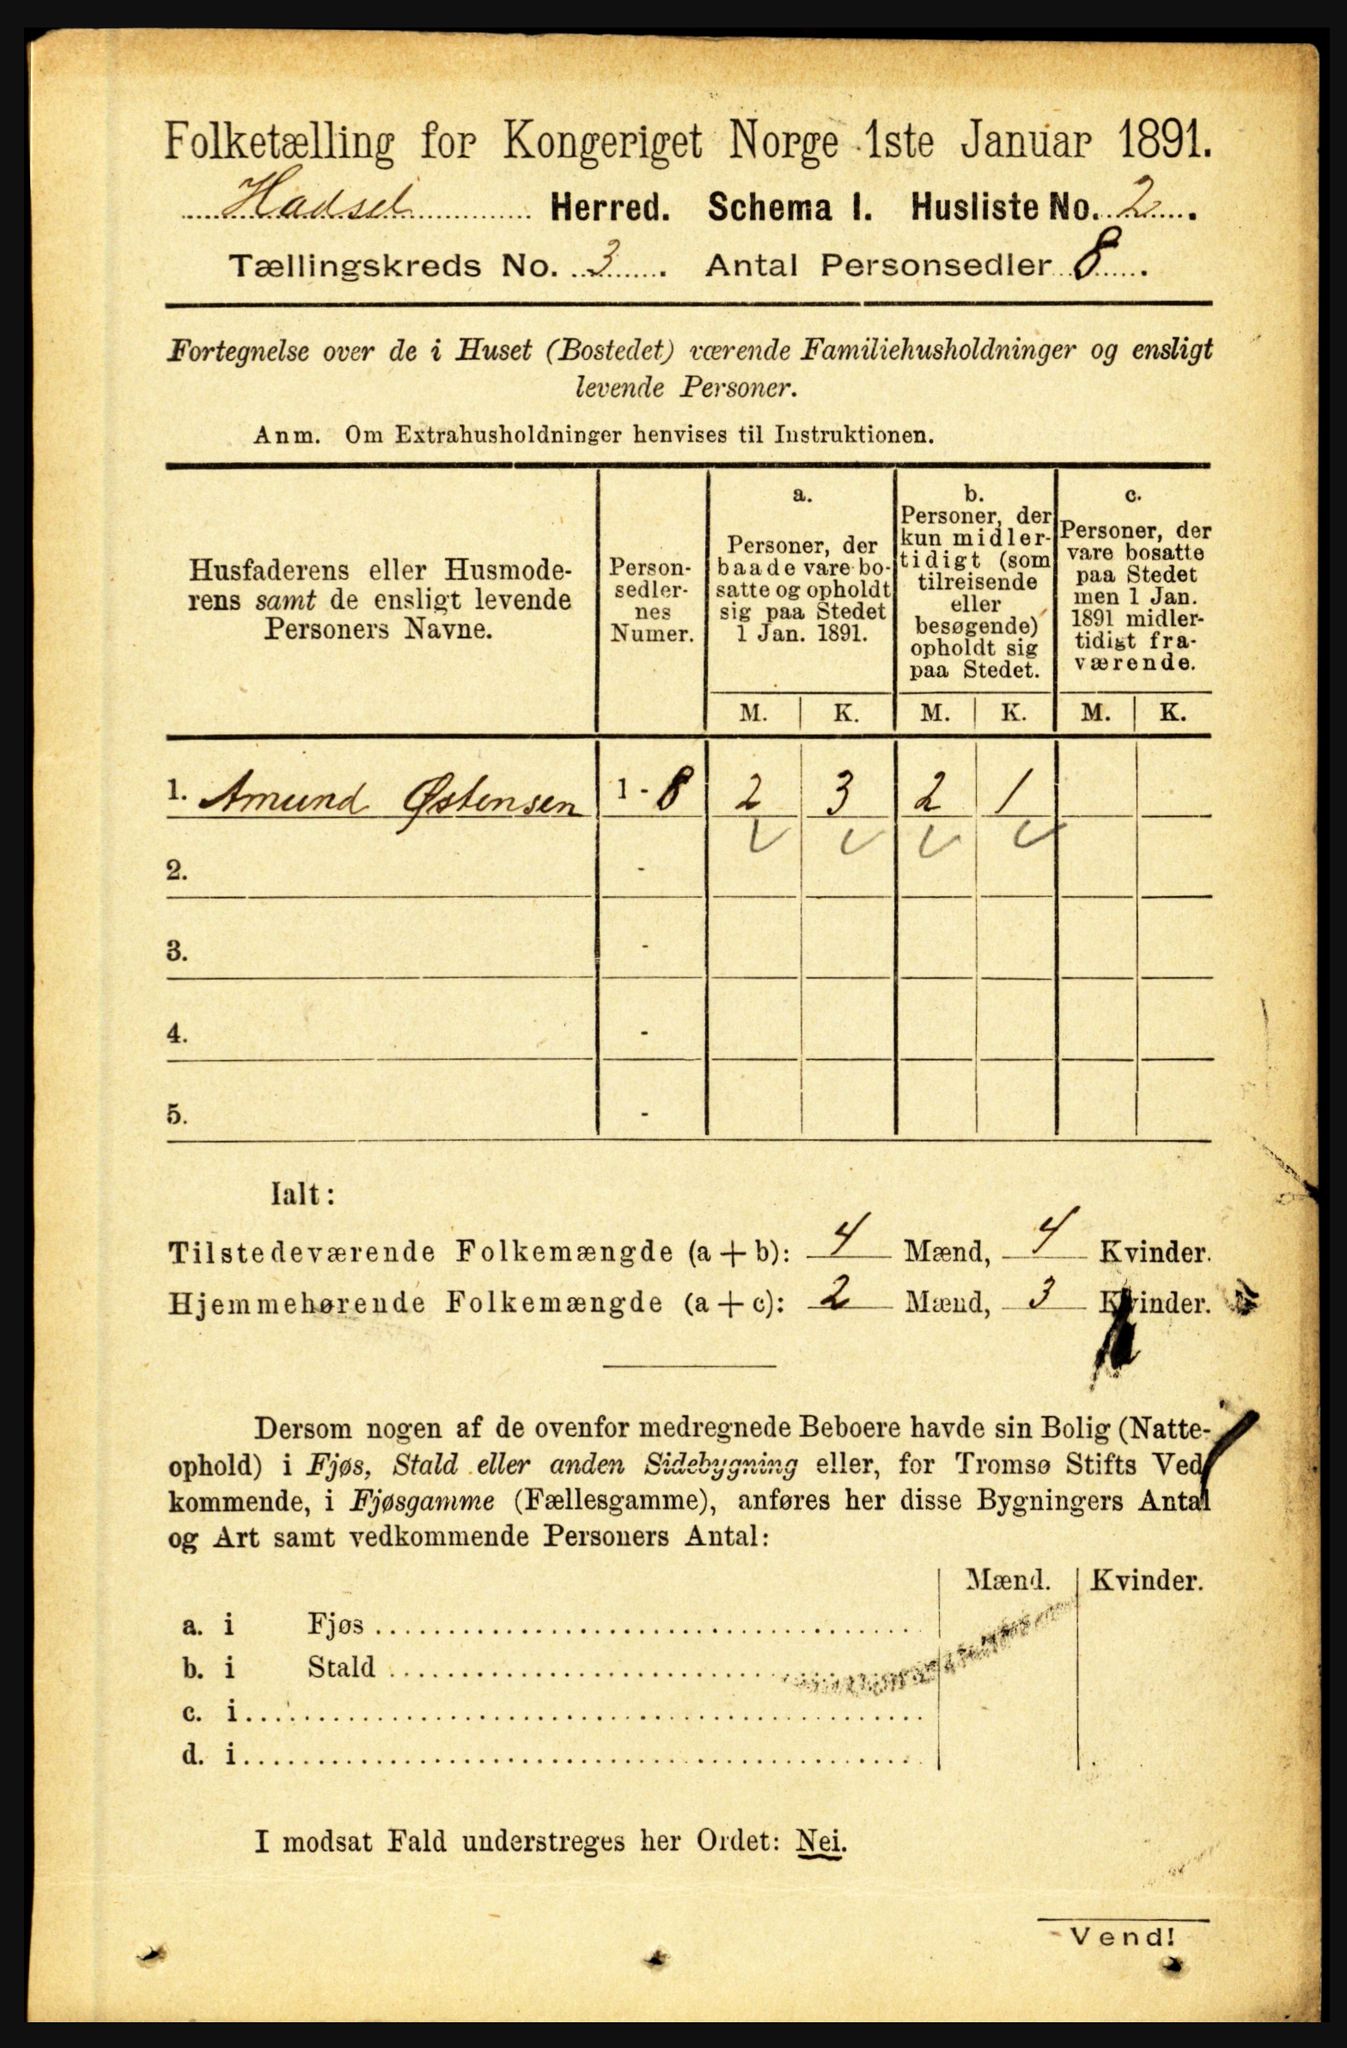 Folketælling for Kongeriget Norge 1ste Januar 1891.
Hadsel Herred. Schema I. Husliste No. 2.
Tællingskreds No. 3. Antal Personsedler 8.
Fortegnelse over de i Huset (Bostedet) værende Familiehusholdninger og ensligt
levende Personer.
Anm. Om Extrahusholdninger henvises til Instruktionen.
Husfaderens eller Husmode-
rens samt de ensligt levende
Personers Navne.
Person-
sedler-
nes
Numer.
a.
Personer, der
baade vare bo-
satte og opholdt
sig paa Stedet
1 Jan. 1891.
b.
Personer, der
kun midler-
tidigt (som
tilreisende
eller
besøgende)
opholdt sig
paa Stedet.
c.
Personer, der
vare bosatte
paa Stedet
men 1 Jan.
1891 midler-
tidigt fra-
værende.
M. K. M. K. M. K.
1. Amund Østensen 1 - 8 2 3 2 1
2. -
3. -
4. -
5. -
Ialt:
Tilstedeværende Folkemængde (a + b): 4 Mænd, 4 Kvinder.
Hjemmehørende Folkemængde (a + c): 2 Mænd, 3 Kvinder.
Dersom nogen af de ovenfor medregnede Beboere havde sin Bolig (Natte-
ophold) i Fjøs, Stald eller anden Sidebygning eller, for Tromsø Stifts Ved-
kommende, i Fjøsgamme (Fællesgamme), anføres her disse Bygningers Antal
og Art samt vedkommende Personers Antal:
Mænd. Kvinder.
a. i Fjøs
b. i Stald
c. i
d. i
I modsat Fald understreges her Ordet: Nei.
Vend!